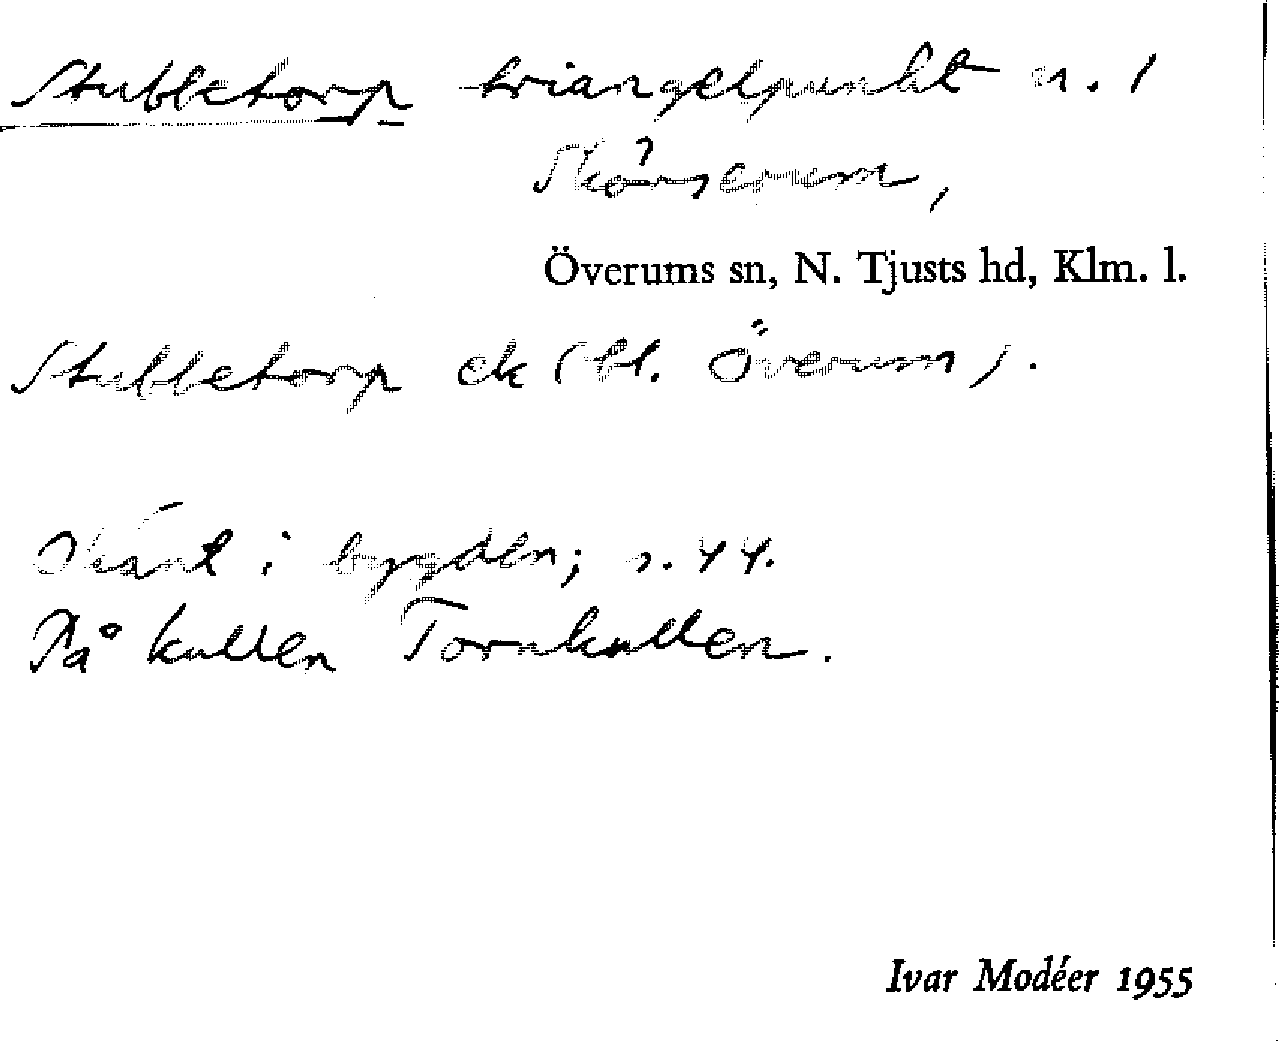 Stubbetorp triangelpunkt n. 1
Skårserum,
Överums sn, N. Tjusts hd, Klm. l.
Stubbetorp ek (bl. Överum).
Okänt i bygden; s. 44.
På kullen Tornkullen.
Ivar Modéer 1955